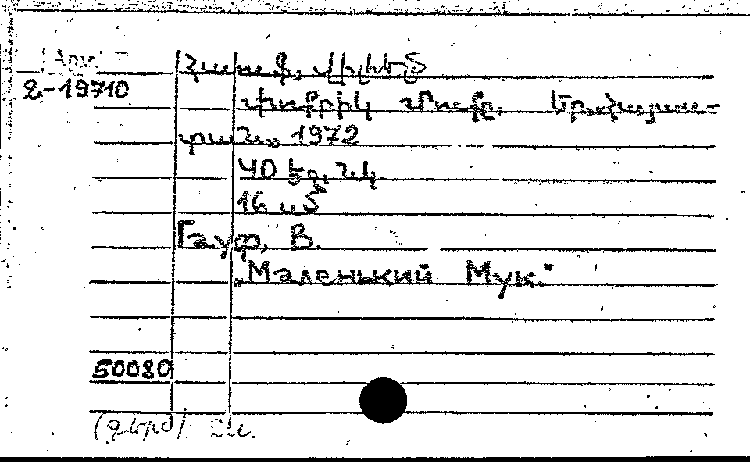 2-19710
Հաուֆ, Վիլհելմ
Փոքրիկ Մուքը. Եր., Հայաս-
տան, 1972
40 էջ, նկ.
16 սմ
Гауф, В.
„Маленький Мук."
50080
(գերմ)